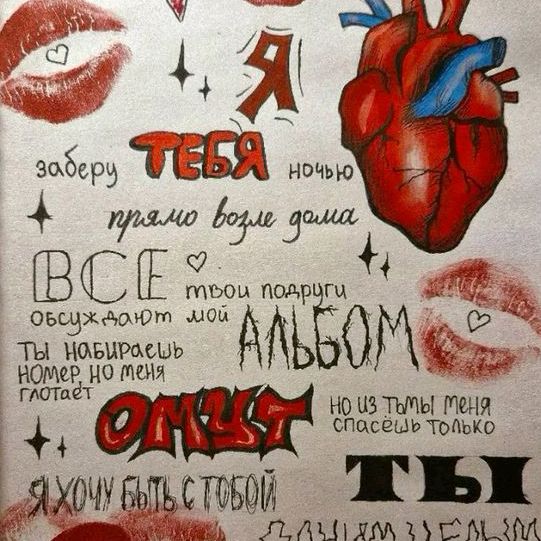 Я
заберу ТЕБЯ ночью
прямо возле дома
ВСЕ твои подруги
обсуждают мой АЛЬБОМ
ты набираешь
номер, но меня
глотает
ОМУТ
но из тьмы меня
спасёшь только
ТЫ
Я ХОЧУ БЫТЬ С ТОБОЙ